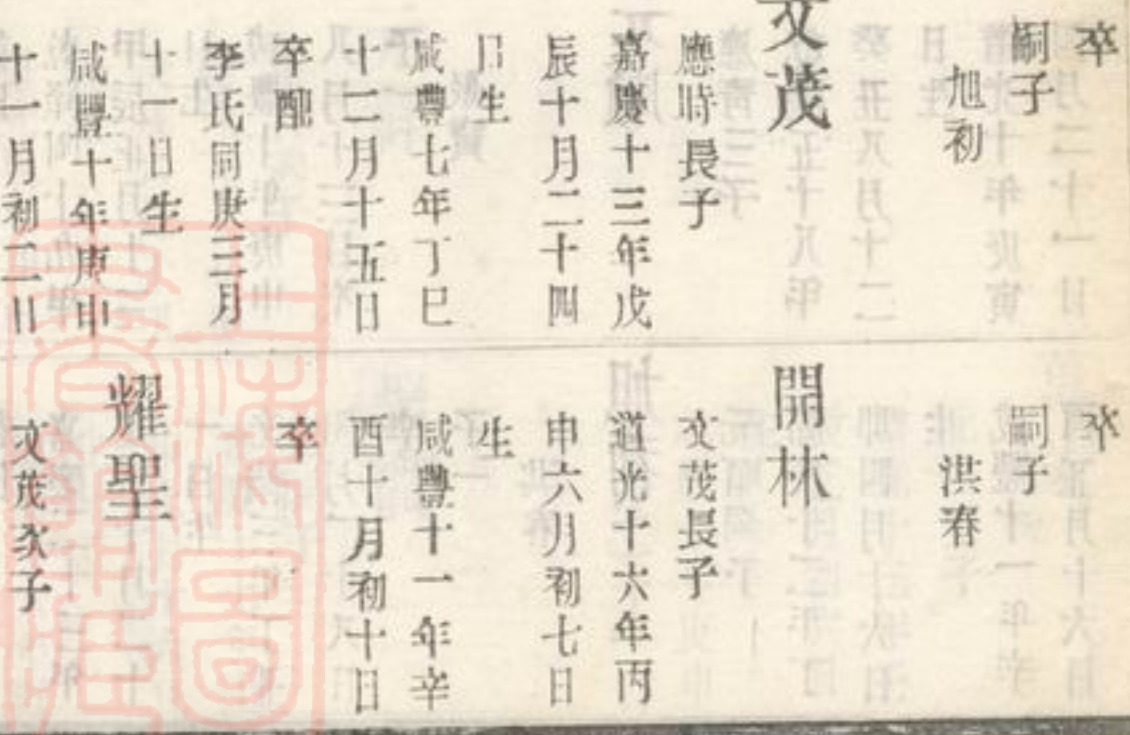 卒
嗣子
旭初
文茂
應時長子
嘉慶十三年戊
辰十月二十四
日生
咸豐七年丁巳
十二月十五日
卒配
李氏同庚三月
十一日生
咸豐十年庚申
十一月初二日
卒
嗣子
洪春
開林
文茂長子
道光十六年丙
申六月初七日
生
咸豐十一年辛
酉十月初十日
卒
耀聖
文茂次子
上海圖書館藏